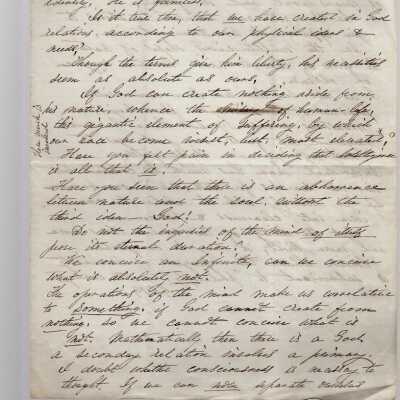 He is
Is it true then, that we have created in God
relations according to our physical ideas &
needs?
Though the terms give him liberty, his necessities
seem as absolute as ours.
If God can create nothing aside from
his nature, whence the of human life,
this gigantic element of suffering, by which
our race become but, most elevated?
Have you felt pain in deciding that
is all that is?
Have you seen that there is an abhorrence
between nature and the soul without the
third idea — God!
Do not the inquiries of the mind of
its eternal duration?
We conceive an Infinite, can we conceive
what is absolutely not.
The operations of the mind make us correlative
to something, if God cannot create from
nothing, so we cannot conceive what is
not. Mathematically then there is a God,
a secondary relation involves a primary.
I doubt whether consciousness is necessary to
thought. If we can separate ourselves